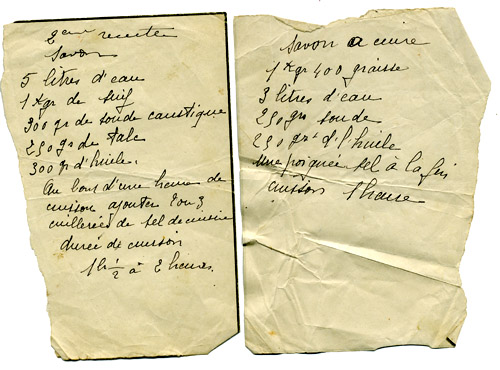 2eme recette
Savon
5 litres d'eau
1 Kgr de suif
300 gr de soude caustique
250 gr de talc
300 gr d'huile.
Au bout d'une heure de
cuisson ajouter 2 ou 3
cuillerées de sel de cuisine
durée de cuisson
1h 1/2 à 2 heures.
Savon a cuire
1 Kgr 400 graisse
3 litres d'eau
250 grs soude
250 grs d'huile
une poignée sel à la fin
cuisson 1 heure